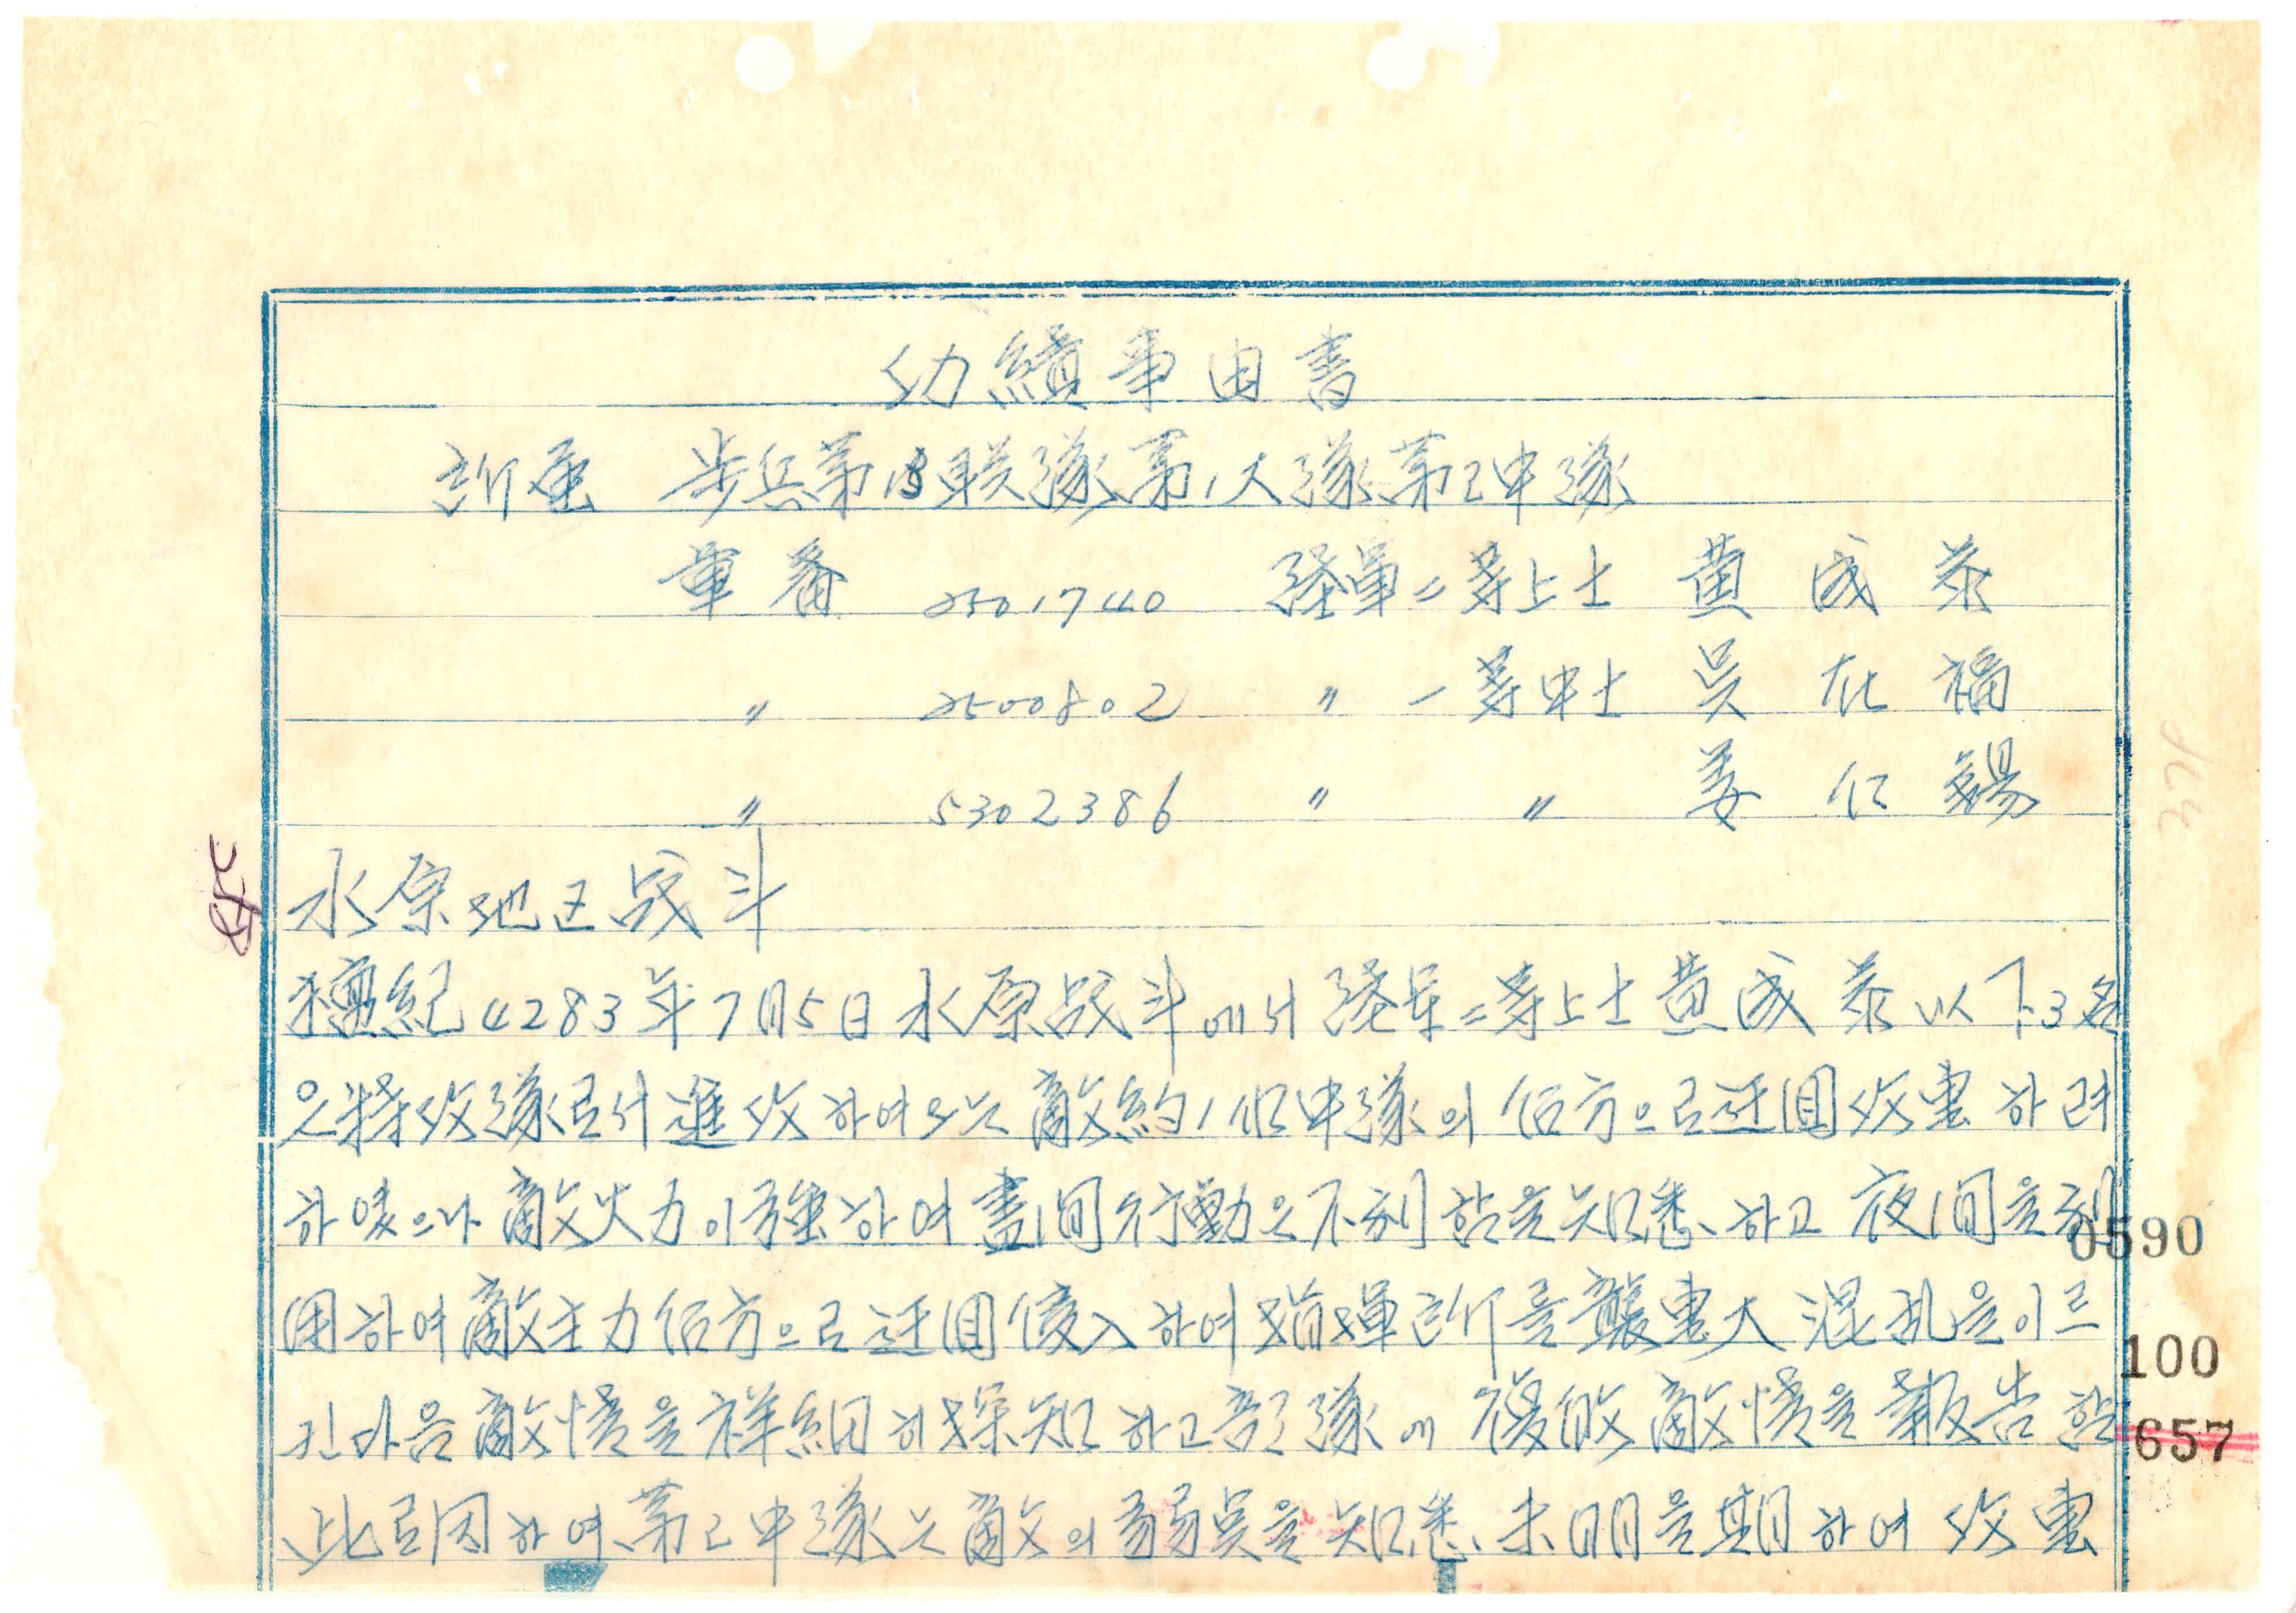 功績事由書
所属 步兵第15联隊第1大隊第2中隊
軍番 2501740 陸軍二等上士 黄成泰
〃 2500802 〃 一等中士 吳在福
〃 5302386 〃 〃 姜仁錫
水原地区战斗
檀紀4283年7月5日水原战斗에서 陸軍二等上士黄成泰以下3名
은特攻隊로서進攻하여오는敵約1個中隊의後方으로迂回攻擊하려
하였으나敵火力이强하여晝間行動은不利함을知悉하고夜間을利
用하여敵主力後方으로迂回侵入하여指揮所를襲擊大混乱을이르
킨다음敵情을祥細히探知하고部隊에複敀敵情을報告함
此로因하여第2中隊는敵의弱点을知悉、未明을期하여攻擊
0590
100
657